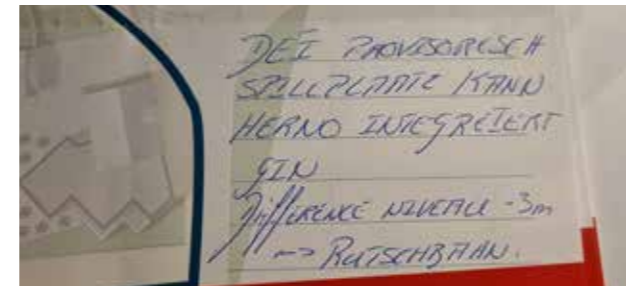 DÉI PROVISORESCH
SPILLPLAATZ KANN
HERNO INTEGRÉIERT
GIN
DifféRENCE NIVEAU -3m
-> RUTSCHBAAN.